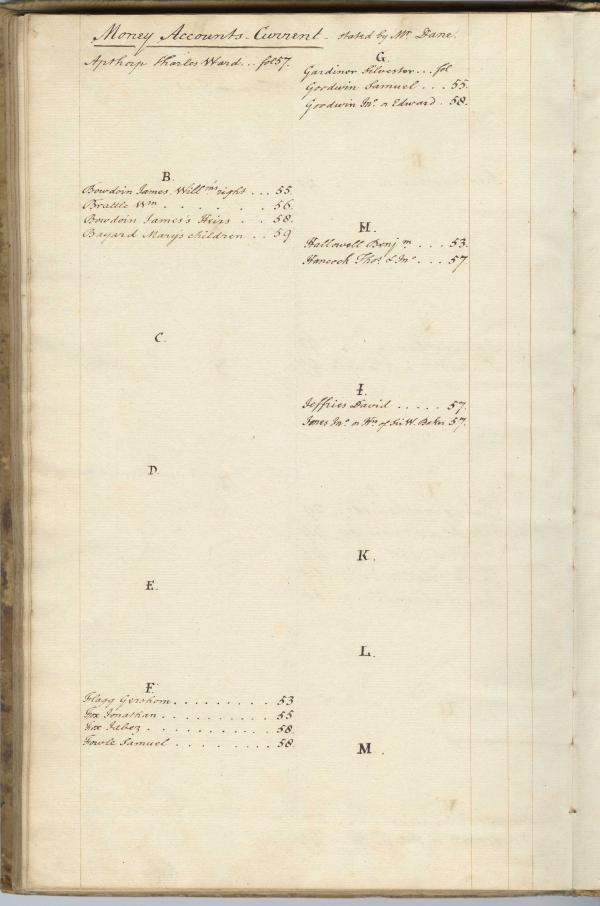 Money Accounts Current - stated by Mr. Dane.
Apthorp Charles Ward... fol 57.
B.
Bowdoin James, Willms right ... 55.
Brattle Wm . . . . . 56.
Bowdoin James's Heirs . . 58.
Bayard Mary's children . . 59
C.
D.
E.
F.
Flagg Gershom . . . . . . . . . 53
Fox Jonathan . . . . . . . . . . 55
Fox Jabez . . . . . . . . . . . 58.
Fowle Samuel . . . . . . . . . 58.
G.
Gardiner Silvester ... fol
Goodwin Samuel . . . 55.
Goodwin Jno. or Edward . 58.
H.
Hallowell Benjm . . . 53.
Hancock Thos. & Jno . . . 57
I.
Jeffries David . . . . . 57.
Jones Jno. or Hrs of Sir W. Baker 57.
K.
L.
M.